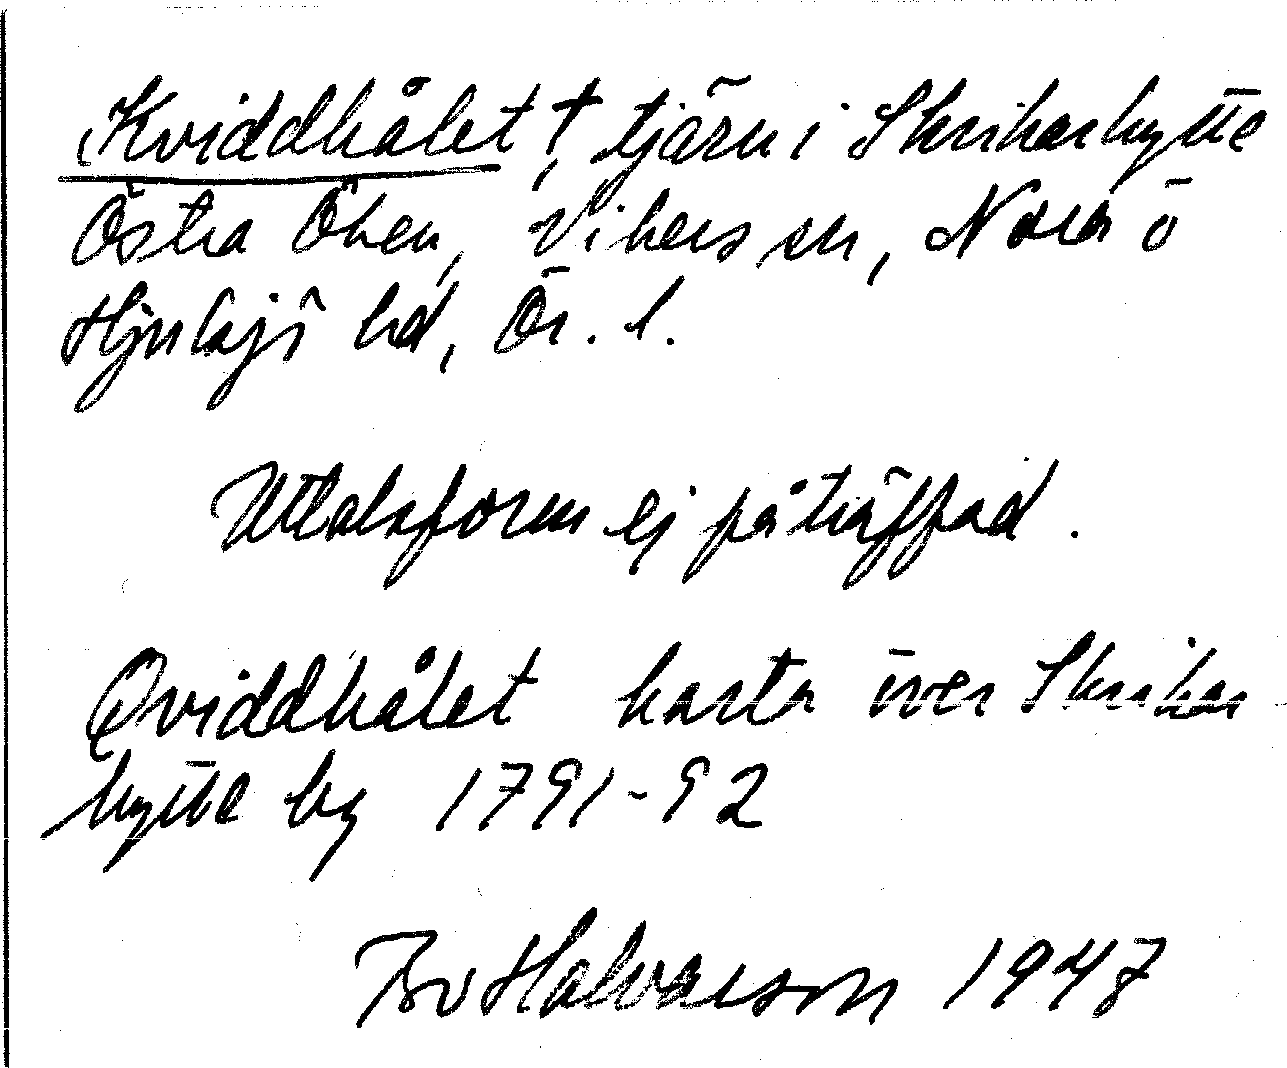 Kviddhålet †, tjärn i Skrikarhytte
Östra Öken, Vikers sn, Nora o
Hjulsjö hd, Ör. l.
Uttalsform ej påträffad.
Qviddhålet karta över Skrikar
hytte by 1791-92
Bo Halvarson 1947